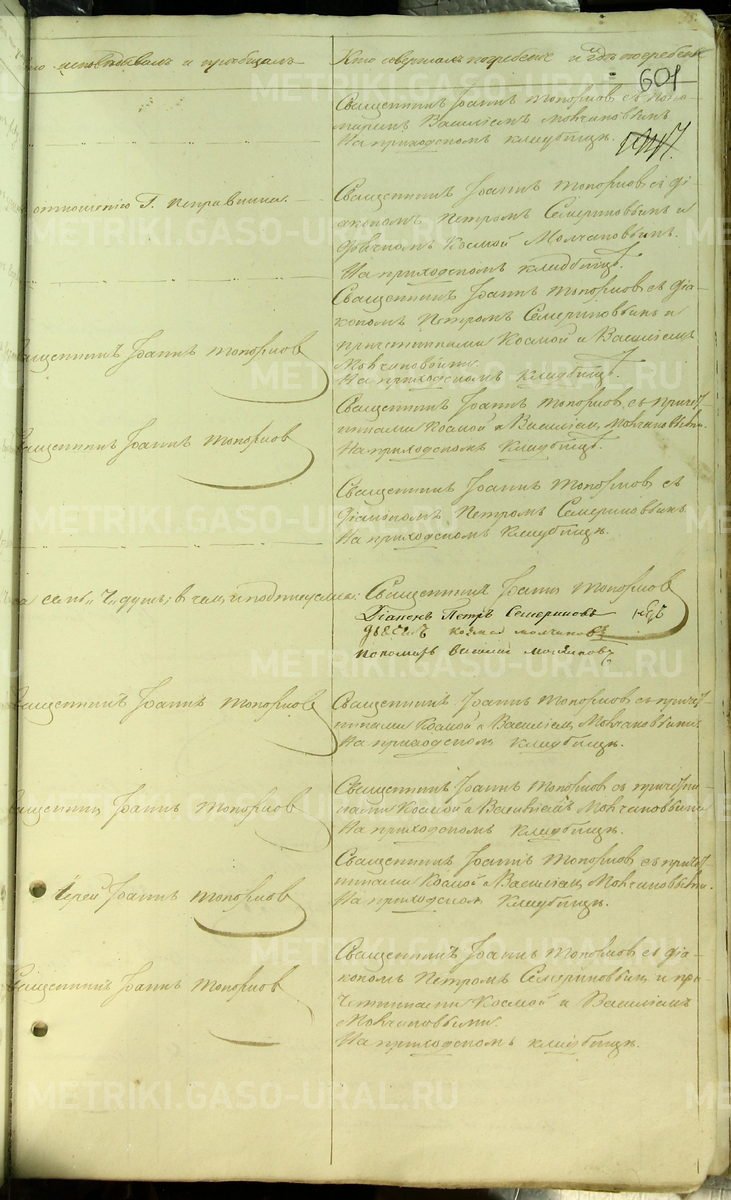 исповѣдывалъ и пріобщалъ
Кто совершалъ погребеніе и гдѣ погребены
601
Священникъ Іоаннъ Топорковъ съ поно-
маремъ Василіемъ Молчановымъ
На приходскомъ кладбищѣ.
отношенію Г. Исправника.
Священникъ Іоаннъ Топорковъ съ Ді-
акономъ Петромъ Семериновымъ и
дьячкомъ Космой Молчановымъ.
На приходскомъ кладбищѣ.
Священникъ Іоаннъ Топорковъ
Священникъ Іоаннъ Топорковъ съ діа-
кономъ Петромъ Семериновымъ и
причетниками Космой и Василіемъ
Молчановыми.
На приходскомъ кладбищѣ.
Священникъ Іоаннъ Топорковъ
Священникъ Іоаннъ Топорковъ съ причет
никами Космой и Василіемъ Молчановыми.
На приходскомъ кладбищѣ.
Священникъ Іоаннъ Топорковъ съ
Діакономъ Петромъ Семериновымъ
На приходскомъ кладбищѣ.
душъ; въ чемъ и подписуемся: Священникъ Іоаннъ Топорковъ
Діаконъ Петръ Семериновъ
дьячекъ козма молчановъ
пономарь василий молчановъ
Священникъ Іоаннъ Топорковъ
Священникъ Іоаннъ Топорковъ съ причет
никами Космой и Василіемъ Молчановыми
На приходскомъ кладбищѣ.
Священникъ Іоаннъ Топорковъ
Священникъ Іоаннъ Топорковъ съ причетни-
ками Космой и Василіемъ Молчановыми
На приходскомъ кладбищѣ.
Іерей Іоаннъ Топорковъ
Священникъ Іоаннъ Топорковъ съ причет
никами Космой и Василіемъ Молчановыми.
На приходскомъ кладбищѣ.
Священникъ Іоаннъ Топорковъ
Священникъ Іоаннъ Топорковъ съ діа-
кономъ Петромъ Семериновымъ и при
четниками Космой и Василіемъ
Молчановыми.
На приходскомъ кладбищѣ.
METRIKI.GASO-URAL.RU